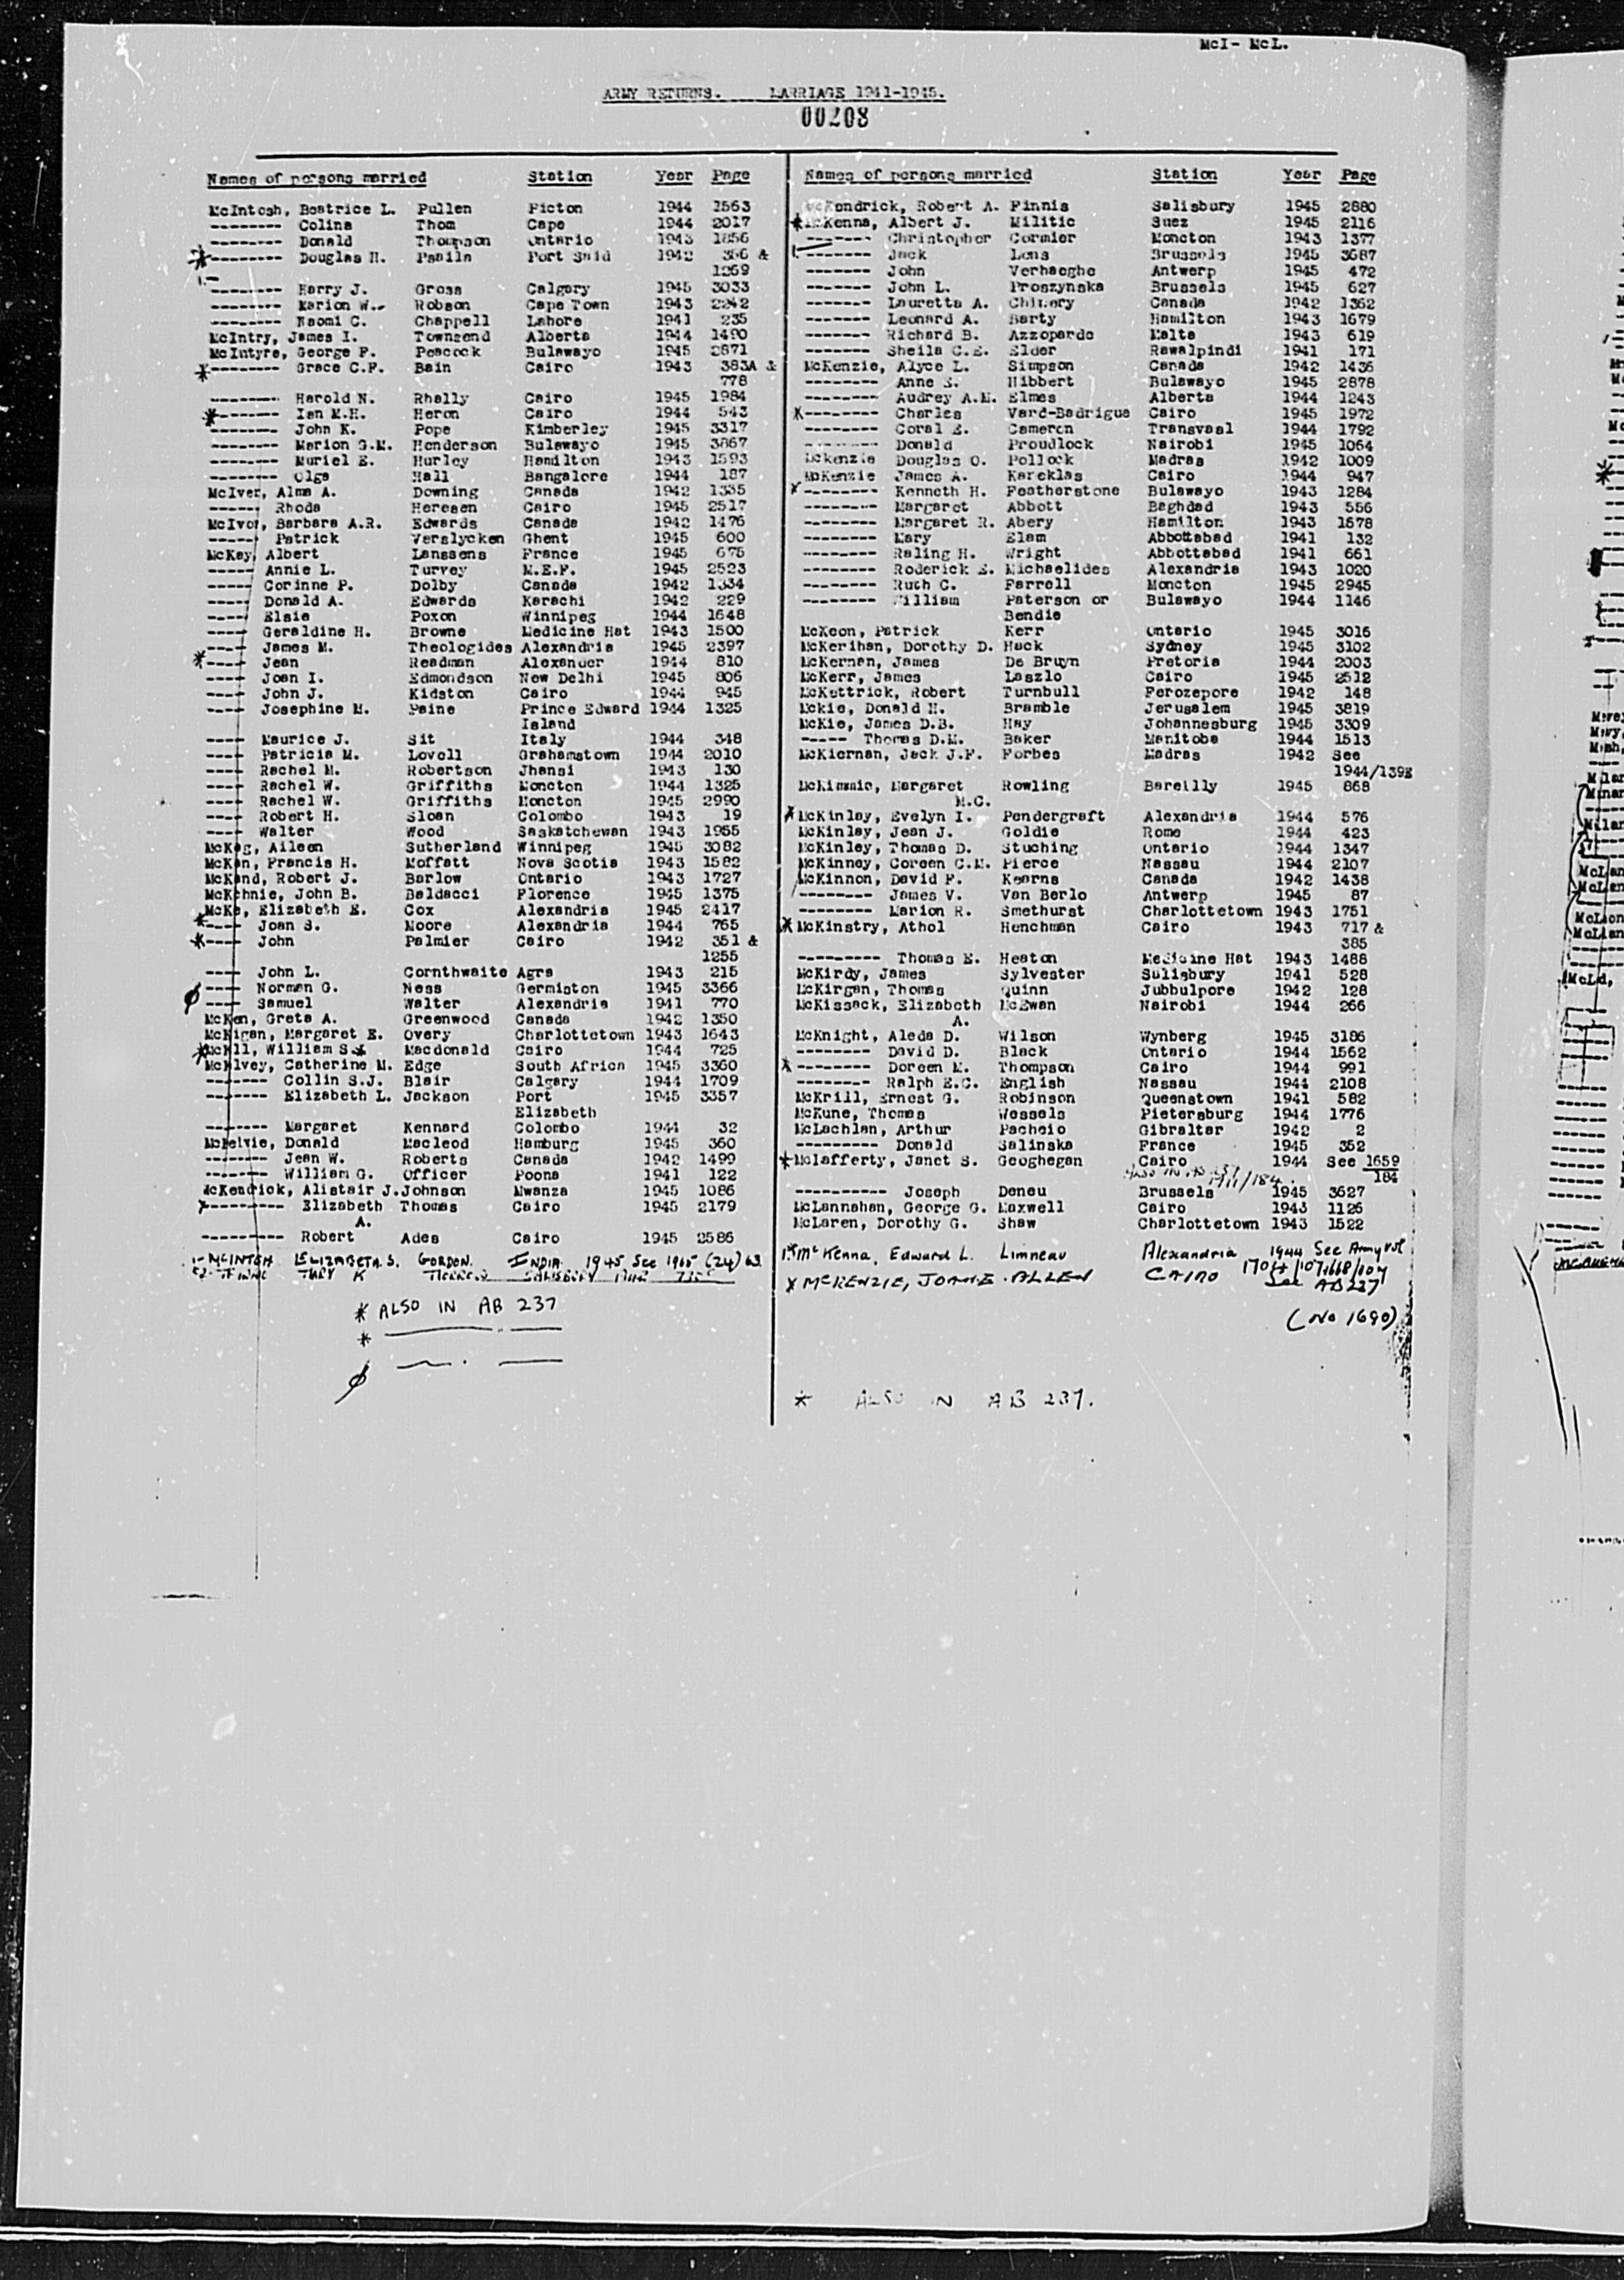 McI- McL.
ARMY RETURNS. MARRIAGE 1941-1945.
00208
Names of persons married Station Year Page
McIntosh, Beatrice L. Pullen Picton 1944 1563
-------- Colina Thom Cape 1944 2017
-------- Donald Thompson Ontario 1943 1856
*-------- Douglas H. Psaila Port Said 1942 366 &
1269
-------- Harry J. Gross Calgary 1945 3033
-------- Marion W. Robson Cape Town 1943 2242
-------- Naomi C. Chappell Lahore 1941 235
McIntry, James I. Townzend Alberta 1944 1490
McIntyre, George P. Peacock Bulawayo 1945 2871
*-------- Grace C.F. Bain Cairo 1943 383A &
778
-------- Harold N. Rhally Cairo 1945 1984
*-------- Ian M.H. Heron Cairo 1944 543
-------- John K. Pope Kimberley 1945 3317
-------- Marion G.M. Henderson Bulawayo 1945 3867
-------- Muriel E. Hurley Hamilton 1943 1593
-------- Olga Hall Bangalore 1944 187
McIver, Alma A. Downing Canada 1942 1335
------ Rhoda Heresen Cairo 1945 2517
McIvor, Barbara A.R. Edwards Canada 1942 1476
------ Patrick Verslycken Ghent 1945 600
McKay, Albert Lanssens France 1945 675
----- Annie L. Turvey M.E.F. 1945 2523
----- Corinne P. Dolby Canada 1942 1334
----- Donald A. Edwards Karachi 1942 229
----- Elsie Poxon Winnipeg 1944 1648
----- Geraldine H. Browne Medicine Hat 1943 1500
----- James M. Theologides Alexandria 1945 2397
*----- Jean Readman Alexander 1944 810
----- Joan I. Edmondson New Delhi 1945 806
----- John J. Kidston Cairo 1944 945
----- Josephine M. Paine Prince Edward 1944 1325
Island
----- Maurice J. Sit Italy 1944 348
----- Patricia M. Lovell Grahamstown 1944 2010
----- Rachel M. Robertson Jhansi 1943 130
----- Rachel W. Griffiths Moncton 1944 1325
----- Rachel W. Griffiths Moncton 1945 2990
----- Robert H. Sloan Colombo 1943 19
----- Walter Wood Saskatchewan 1943 1955
McKag, Aileen Sutherland Winnipeg 1945 3082
McKan, Francis H. Moffatt Nova Scotia 1943 1582
McKand, Robert J. Barlow Ontario 1943 1727
McKchnie, John B. Baldacci Florence 1945 1375
McKe, Elizabeth E. Cox Alexandria 1945 2417
*---- Joan S. Moore Alexandria 1944 765
*---- John Palmier Cairo 1942 351 &
1255
---- John L. Cornthwaite Agra 1943 215
---- Norman G. Ness Germiston 1945 3366
ϕ ---- Samuel Walter Alexandria 1941 770
McKen, Greta A. Greenwood Canada 1942 1350
McKigan, Margaret E. Overy Charlottetown 1943 1643
*McKll, William S. Macdonald Cairo 1944 725
McKlvey, Catherine M. Edge South Africa 1945 3360
------- Collin S.J. Blair Calgary 1944 1709
------- Elizabeth L. Jackson Port 1945 3357
Elizabeth
------- Margaret Kennard Colombo 1944 32
McKelvie, Donald Macleod Hamburg 1945 360
-------- Jean W. Roberts Canada 1942 1499
-------- William G. Officer Poona 1941 122
McKendrick, Alistair J. Johnson Mwanza 1945 1086
x--------- Elizabeth Thomas Cairo 1945 2179
A.
--------- Robert Ades Cairo 1945 2586
1- McINTSH ELIZABETH S. GORDON. INDIA 1945 See 1965 (24) 63
* ALSO IN AB 237
*
ϕ
Names of persons married Station Year Page
McKendrick, Robert A. Finnis Salisbury 1945 2880
*McKenna, Albert J. Militic Suez 1945 2116
------- Christopher Cormier Moncton 1943 1377
------- Jack Lens Brussels 1945 3687
------- John Verhaeghe Antwerp 1945 472
------- John L. Proszynska Brussels 1945 627
------- Lauretta A. Chinery Canada 1942 1362
------- Leonard A. Barty Hamilton 1943 1679
------- Richard B. Azzopardo Malta 1943 619
------- Sheila C.E. Elder Rawalpindi 1941 171
McKenzie, Alyce L. Simpson Canada 1942 1436
-------- Anne S. Hibbert Bulawayo 1945 2878
-------- Audrey A.M. Elmes Alberta 1944 1243
x-------- Charles Vard-Badrigue Cairo 1945 1972
-------- Coral E. Cameron Transvaal 1944 1792
-------- Donald Proudlock Nairobi 1945 1064
Mckenzie Douglas O. Pollock Madras 1942 1009
McKenzie James A. Kareklas Cairo 1944 947
x-------- Kenneth H. Featherstone Bulawayo 1943 1284
-------- Margaret Abbott Baghdad 1943 556
-------- Margaret R. Abery Hamilton 1943 1678
-------- Mary Elam Abbottabad 1941 132
-------- Raling H. Wright Abbottabad 1941 661
-------- Roderick E. Michaelides Alexandria 1943 1020
-------- Ruth C. Farrell Moncton 1945 2945
-------- William Paterson or Bulawayo 1944 1146
Bendie
McKeon, Patrick Kerr Ontario 1945 3016
McKerihan, Dorothy D. Huck Sydney 1945 3102
McKernan, James De Bruyn Pretoria 1944 2003
McKerr, James Laszlo Cairo 1945 2512
McKettrick, Robert Turnbull Ferozepore 1942 148
Mckie, Donald H. Bramble Jerusalem 1945 3819
McKie, James D.B. Hay Johannesburg 1945 3309
----- Thomas D.M. Baker Manitoba 1944 1513
McKiernan, Jack J.F. Forbes Madras 1942 See
1944/139B
McKimmie, Margaret Rowling Bareilly 1945 868
M.C.
*McKinlay, Evelyn I. Pendergraft Alexandria 1944 576
McKinlay, Jean J. Goldie Rome 1944 423
McKinley, Thomas D. Stuching Ontario 1944 1347
McKinney, Coreen C.M. Pierce Nassau 1944 2107
McKinnon, David F. Kearns Canada 1942 1438
-------- James V. Van Berlo Antwerp 1945 87
-------- Marion R. Smethurst Charlottetown 1943 1751
*McKinstry, Athol Henchman Cairo 1943 717 &
385
--------- Thomas E. Heaton Medicine Hat 1943 1488
McKirdy, James Sylvester Salisbury 1941 528
McKirgan, Thomas Quinn Jubbulpore 1942 128
McKissack, Elizabeth McEwan Nairobi 1944 266
A.
McKnight, Aleda D. Wilson Wynberg 1945 3186
-------- David D. Black Ontario 1944 1562
x-------- Doreen M. Thompson Cairo 1944 991
-------- Ralph E.C. English Nassau 1944 2108
McKrill, Ernest G. Robinson Queenstown 1941 582
McKune, Thomas Wessels Pietersburg 1944 1776
McLachlan, Arthur Pacheio Gibraltar 1942 2
--------- Donald Salinska France 1945 352
*Mclafferty, Janet S. Geoghegan Cairo 1944 See 1659
184
---------- Joseph Deneu Brussels 1945 3627
McLannahan, George G. Maxwell Cairo 1943 1126
McLaren, Dorothy G. Shaw Charlottetown 1943 1522
1*McKenna, Edward L. Limneau Alexandria 1944 See Army vol
x McKENZIE, JOANE ALLEN CAIRO See AB 237
(No 1690)
* ALSO IN AB 237.